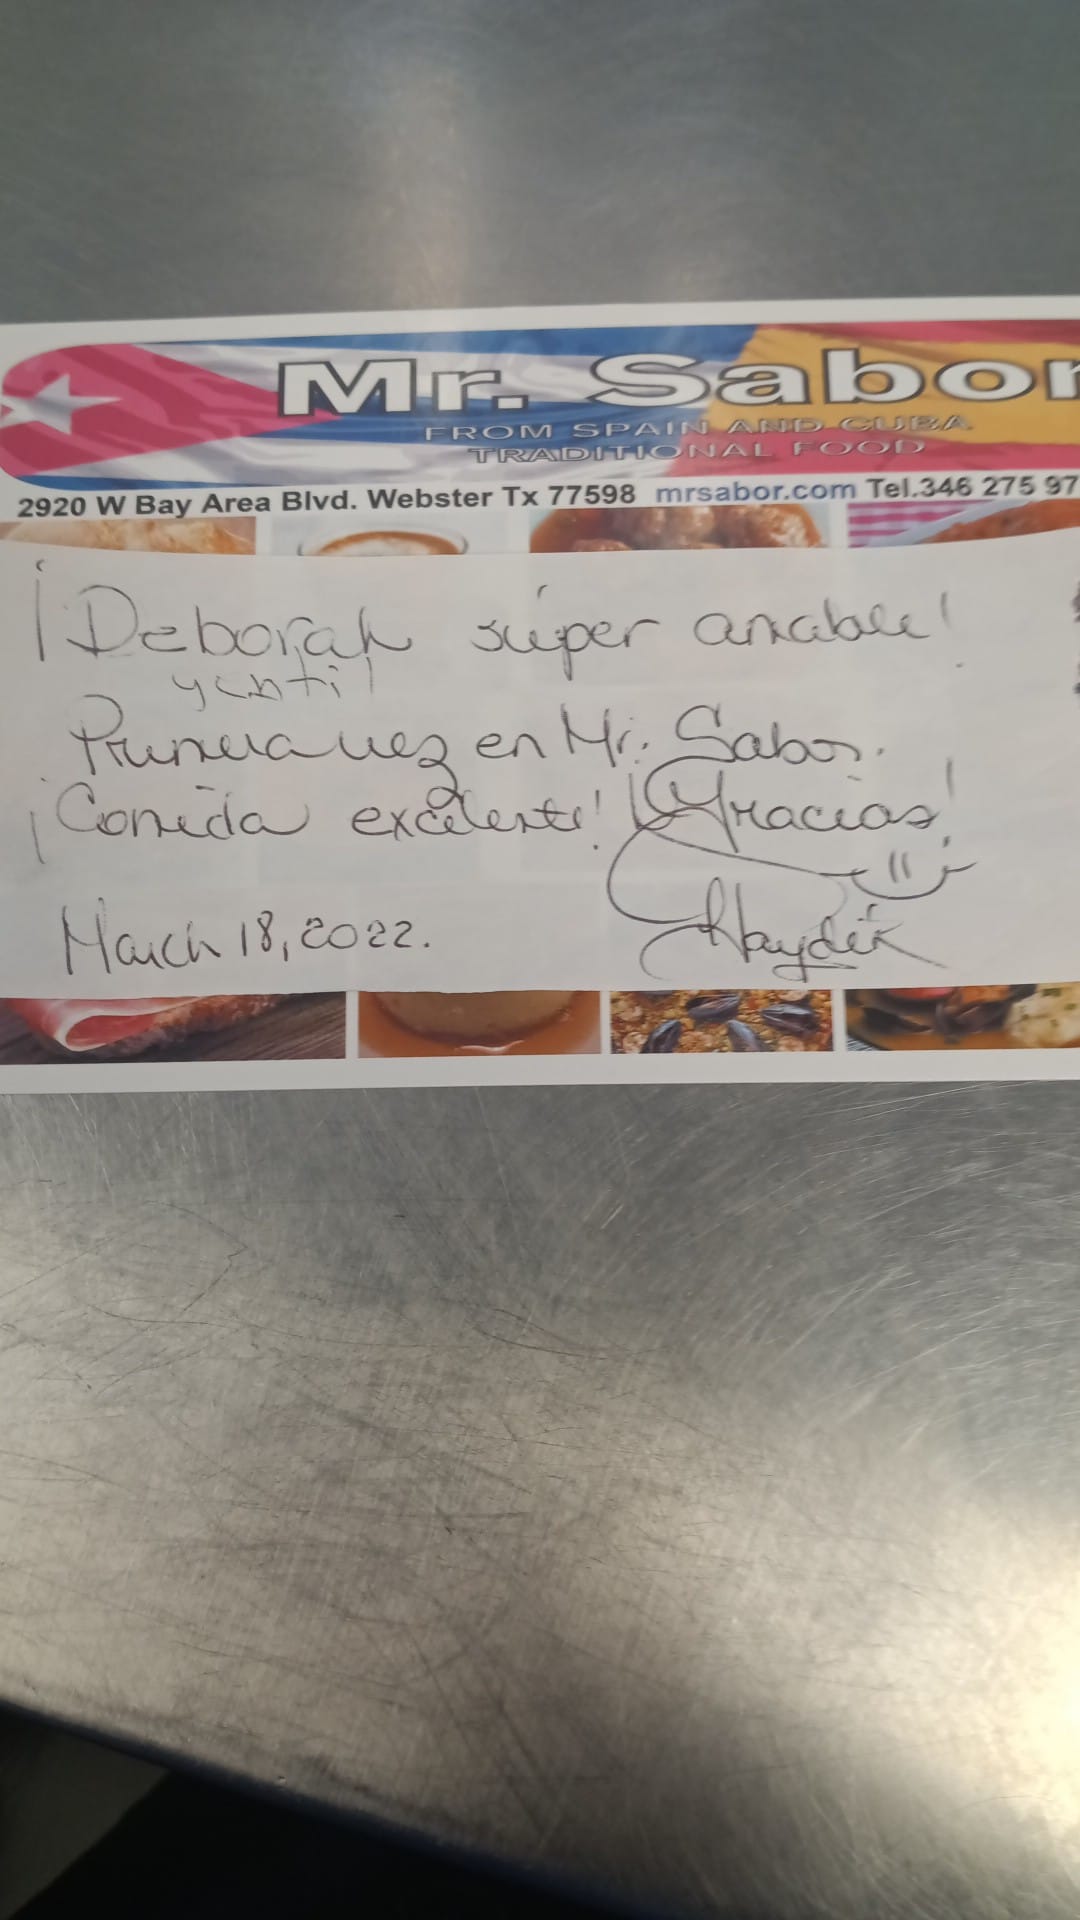 Mr. Sabor
FROM SPAIN AND CUBA
TRADITIONAL FOOD
2920 W Bay Area Blvd. Webster Tx 77598 mrsabor.com Tel.346 275 97
¡Deborah súper amable!
y
Primera vez en Mr. Sabor.
¡Comida excelente! ¡Gracias!
March 18, 2022.